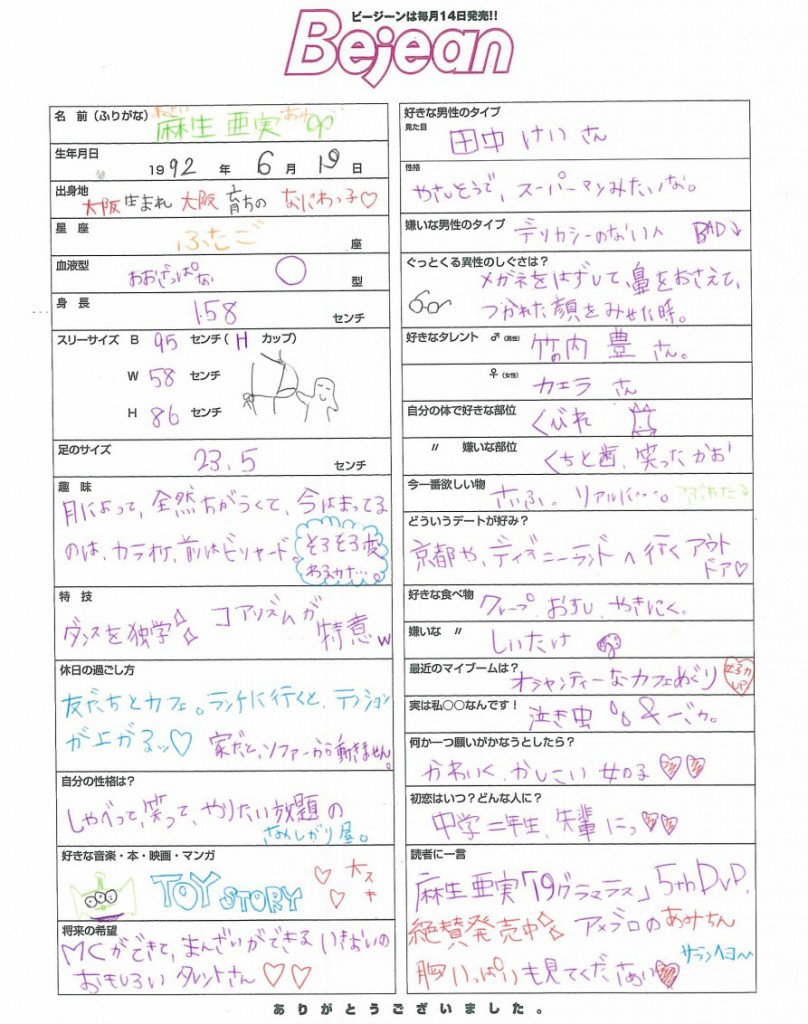 ビージーンは毎月14日発売!!
Bejean
名 前 (ふりがな) 麻生 亜実
あそう あみ
生年月日
1992 年 6 月 19 日
出身地
大阪 生まれ 大阪 育ちの なにわっ子♡
星 座 ふたご 座
血液型 おおざっぱな ○ 型
身 長 158 センチ
スリーサイズ B 95 センチ( H カップ)
W 58 センチ
H 86 センチ
足のサイズ 23.5 センチ
趣 味
月によって、全然ちがうくて、今はまってる
のは、カラオケ、前はビリヤード。
そろそろ変
わるカナ…。
特 技
ダンスを独学☆ コアリズムが
特意w
休日の過ごし方
友だちとカフェ。ランチに行くと、テンション
が上がるッ♡ 家だと、ソファーから動きません。
自分の性格は?
しゃべって、笑って、やりたい放題の
さみしがり屋。
好きな音楽・本・映画・マンガ
TOY STORY ♡ 大スキ
将来の希望
MCができて、まんざいができる いきおいの
おもしろい タレントさん ♡♡
好きな男性のタイプ
見た目 田中 けい さん
性格
やさしそうで、スーパーマンみたいな。
嫌いな男性のタイプ デリカシーのない人 BAD↓
ぐっとくる異性のしぐさは?
メガネをはずして、鼻をおさえて、
つかれた顔をみせた時。
好きなタレント ♂(男性) 竹の内 豊 さん。
♀(女性) カエラ さん
自分の体で好きな部位 くびれ
〃 嫌いな部位 くちと歯、笑った かお
今一番欲しい物 さいふ。リアルに…。
どういうデートが好み?
京都や、ディズニーランド へ行く アウト
ドア♡
好きな食べ物 クレープ おすし、やきにく。
嫌いな 〃 しいたけ
最近のマイブームは? オシャンティーなカフェめぐり 女子力
UP
実は私○○なんです! 泣き虫 & バカ。
何か一つ願いがかなうとしたら?
かわいく、かしこい 女の子 ♡♡
初恋はいつ?どんな人に?
中学二年生、先輩 にっ♡♡
読者に一言
麻生 亜実「19グラマラス」5th DVD。
絶賛発売中☆ アメブロの あみちん
胸いっぱい も見てくださぁい♡ サランヘヨ〜
ありがとうございました。